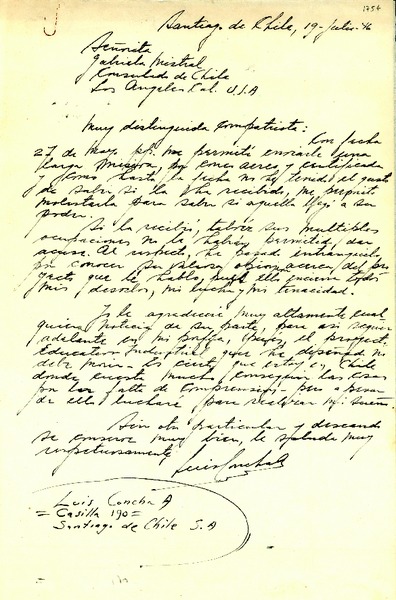 1754
Santiago de Chile, 19-Julio-46
Señorita
Gabriela Mistral
Consulado de Chile
Los Angeles Cal. U.S.A
Muy distinguida compatriota:
Con fecha
27 de Mayo ppd. me permití enviarle una
larga misiva, por correo aéreo y certificada
y como hasta la fecha no he tenido el gusto
de saber si la ha recibido, me permito
molestarla para saber si aquella llegó a su
poder.
Si la recibió, talvez sus múltiples
ocupaciones no le habrán permitido, dar
acuse. Al respecto he pasado intranquilo
por conocer su opinión acerca del pro
yecto que le hablo, pues ello encierra todos
mis desvelos, mi lucha y mi tenacidad.
Yo le agradeceré muy altamente cual
quiera noticia de su parte, para así seguir
adelante en mi porfía, pues, el proyecto
Educativo Industrial que he diseñado no
debe morir. Es cierto que estoy en Chile
donde cuesta mucho conseguir las cosas
por la falta de comprensión pero a pesar
de ello lucharé para realizar mi sueño.
Sin otro particular y deseando
se conserve muy bien, le saluda muy
respetuosamente
Luis Concha A
Luis Concha A
= Casilla 190 =
Santiago de Chile S.A